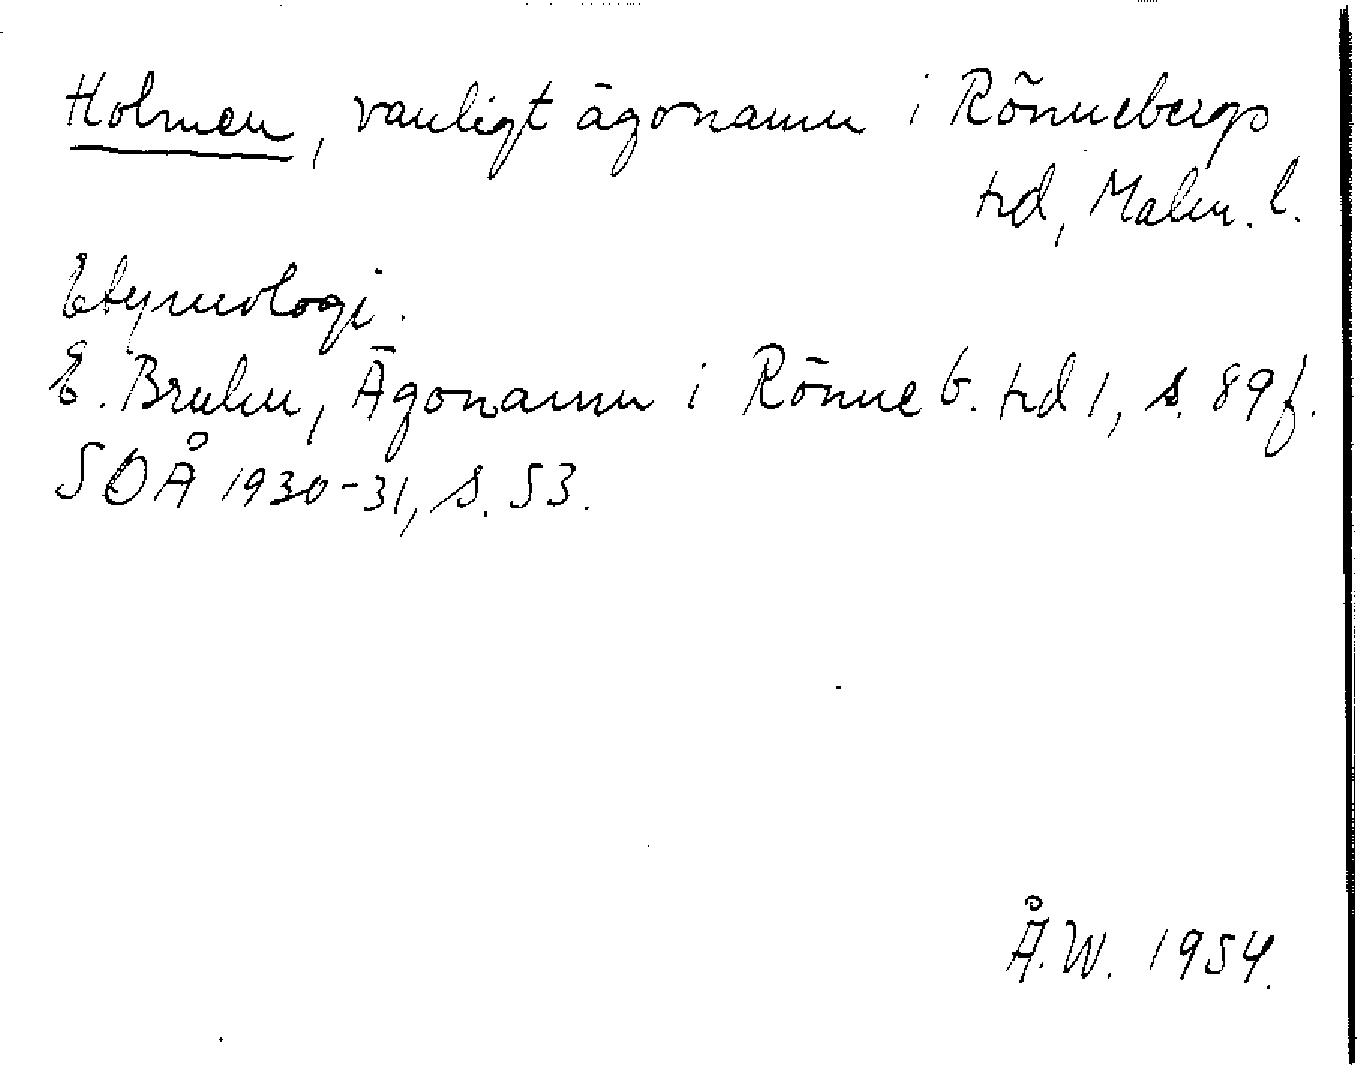 Holmen, vanligt ägonamn i Rönnebergs
hd, Malm. l.
Etymologi.
E. Bruhn, Ägonamn i Rönneb. hd 1, s. 89 f.
SOÅ 1930-31, s. 53.
Å.W. 1954.